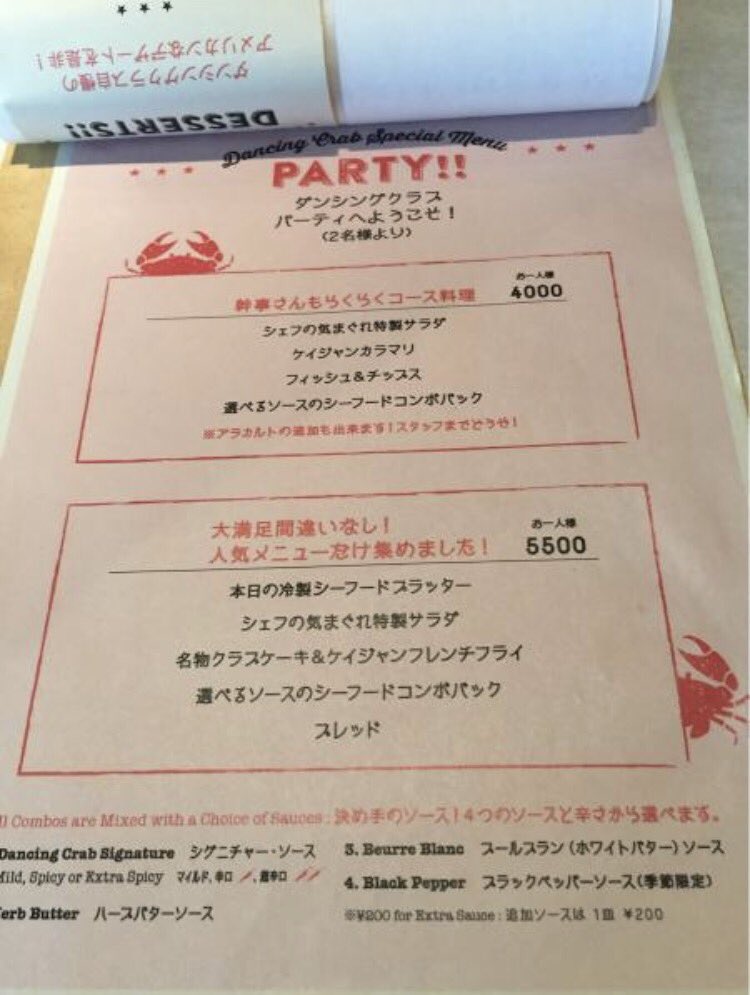 アメリカンなデザートを是非！
ダンシングクラブ自慢の
DESSERTS!!
Dancing Crab Special Menu
PARTY!!
ダンシングクラブ
パーティへようこそ！
(2名様より)
お一人様
幹事さんもらくらくコース料理 4000
シェフの気まぐれ特製サラダ
ケイジャンカラマリ
フィッシュ&チップス
選べるソースのシーフードコンボバック
※アラカルトの追加も出来ます！スタッフまでどうぞ！
大満足間違いなし！ お一人様
人気メニューだけ集めました！ 5500
本日の冷製シーフードプラッター
シェフの気まぐれ特製サラダ
名物クラブケーキ&ケイジャンフレンチフライ
選べるソースのシーフードコンボバック
ブレッド
Combos are Mixed with a Choice of Sauces : 決め手のソース！4つのソースと辛さから選べます。
Dancing Crab Signature シグニチャー・ソース
Mild, Spicy or Extra Spicy マイルド、辛口、激辛口
erb Butter ハーブバターソース
3. Beurre Blanc ブールブラン（ホワイトバター）ソース
4. Black Pepper ブラックペッパーソース(季節限定)
※¥200 for Extra Sauce : 追加ソースは 1皿 ¥200